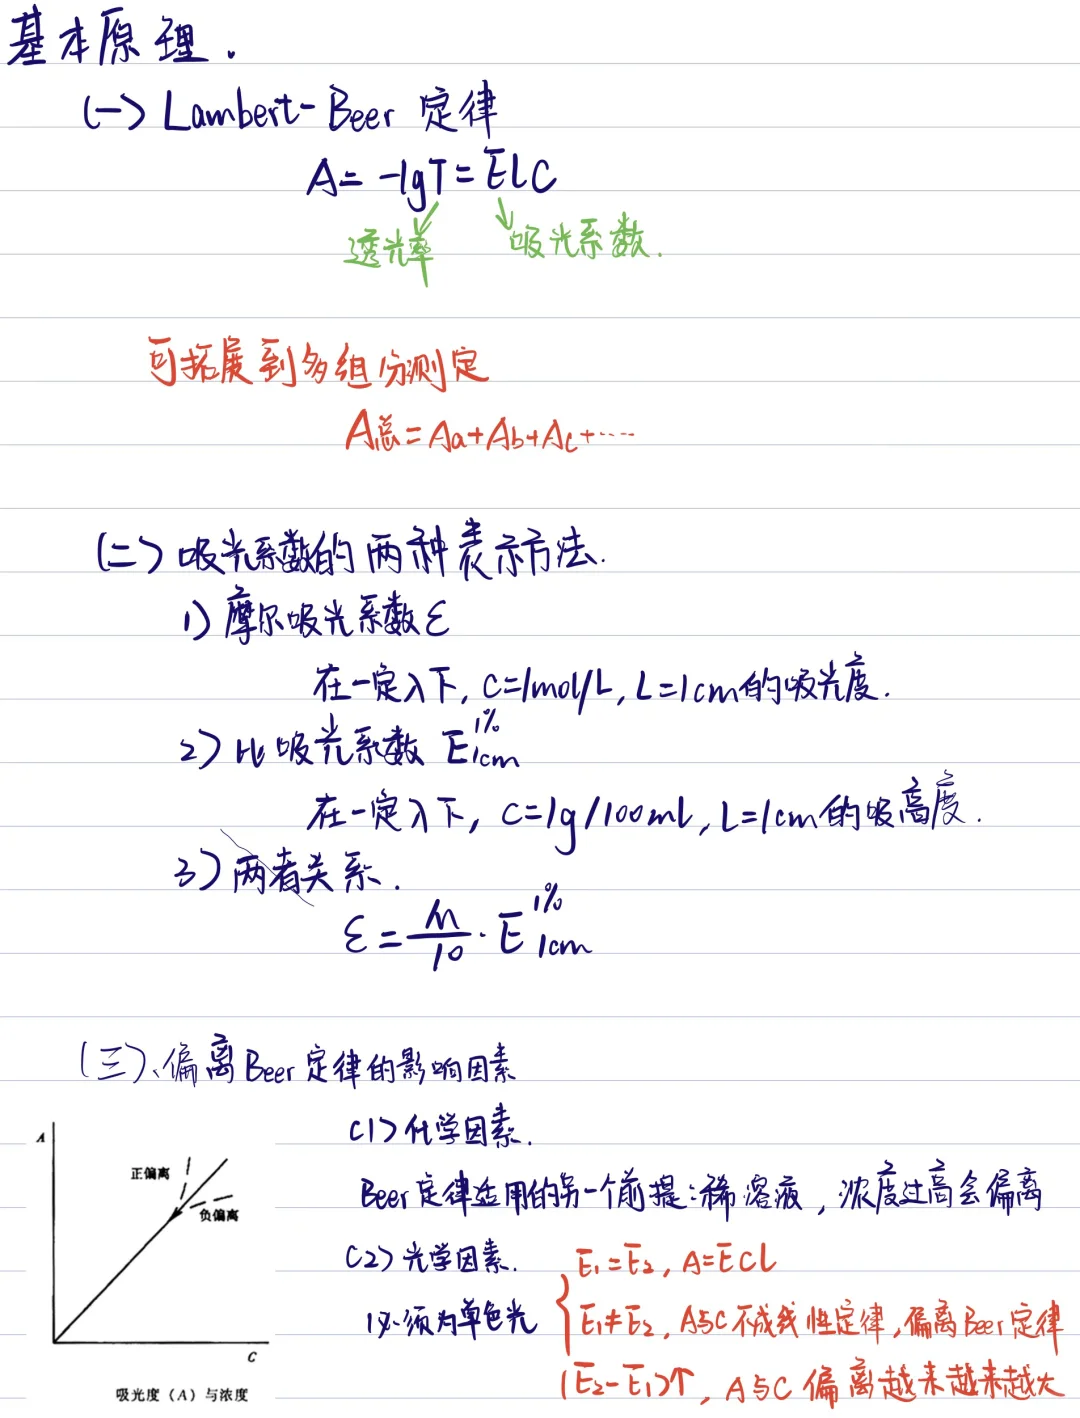 基本原理.
(一) Lambert-Beer 定律
A= -lgT= ELC
透光率 吸光系数.
可拓展到多组分测定
A总= Aa+Ab+Ac+……
(二) 吸光系数的两种表示方法.
1) 摩尔吸光系数 ε
在一定λ下, C=1mol/L, L=1cm的吸光度.
2) 比吸光系数 E1%1cm
在一定λ下, C=1g/100mL, L=1cm的吸高度.
3) 两者关系.
ε = M/10 · E1%1cm
(三)、偏离Beer定律的影响因素
(1) 化学因素.
Beer定律适用的另一个前提:稀溶液, 浓度过高会偏离
(2) 光学因素.
必须为单色光
E₁=E₂, A=ECL
E₁≠E₂, A与C不成线性定律, 偏离Beer定律
(E₂-E₁)↑, A与C偏离越来越来越大
A
正偏离
负偏离
C
吸光度（A）与浓度